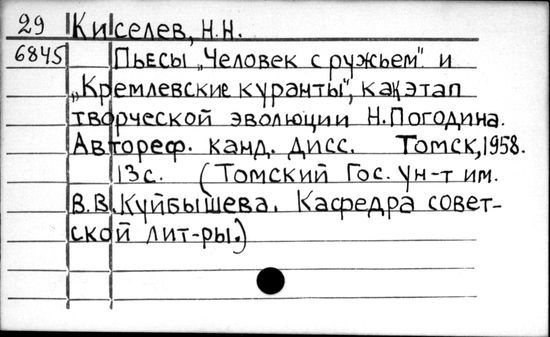 29 Киселев, Н.Н.
6845 Пьесы „Человек с ружьем" и
„Кремлевские куранты", как этап
творческой эволюции Н.Погодина.
Автореф. канд. дисс. Томск, 1958.
13с. (Томский Гос. ун-т им.
В.В.Куйбышева. Кафедра совет-
ской лит-ры.)